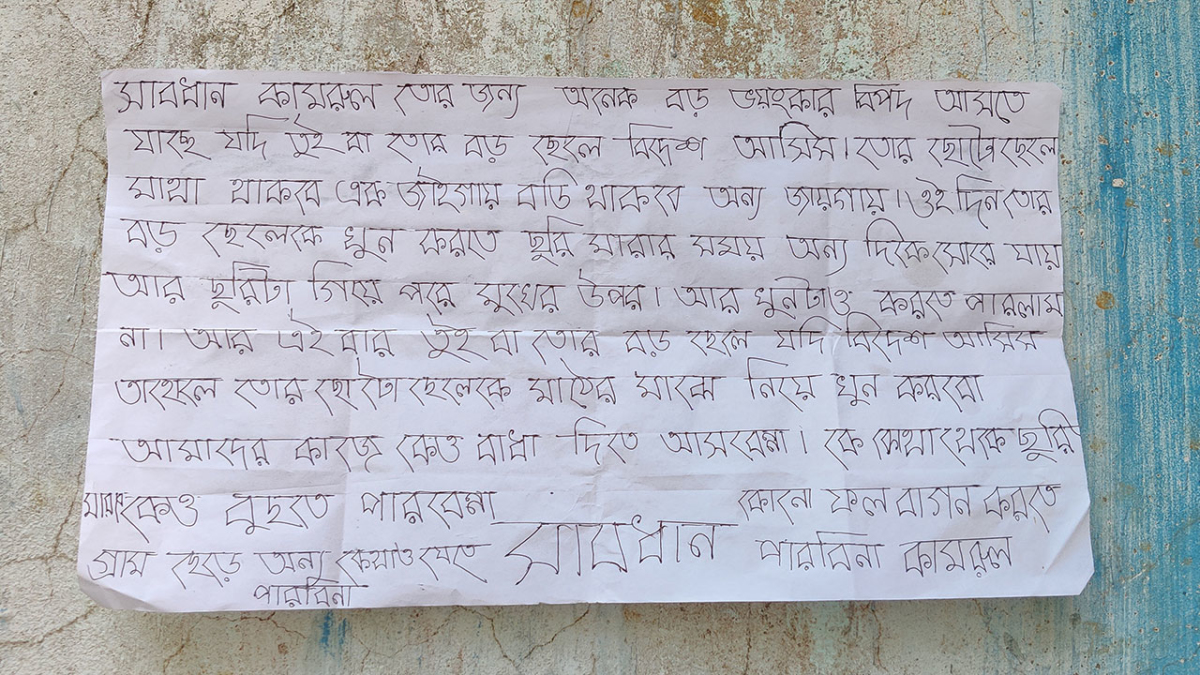 সাবধান কামরুল তোর জন্য অনেক বড় ভয়ংকার বিপদ আসতে
যাচ্ছে যদি তুই বা তোর বড় ছেলে বিদেশ আসিস। তোর ছোটো ছেলে
মাথা থাকবে এক জাইগায় বডি থাকবে অন্য জায়গায়। ওই দিন তোর
বড় ছেলেকে খুন করতে ছুরি মারার সময় অন্য দিকে সোরে যায়
আর ছুরিটা গিয়ে পরে মুখের উপর। আর খুনটাও করতে পারলাম
না। আর এই বার তুই বা তোর বড় ছেলে যদি বিদেশ আসিস
তাহেলে তোর ছোটো ছেলেকে মাঠের মাঝে নিয়ে খুন করবো
আমাদের কাজে কেও বাধা দিতে আসবেনা। কে কোথা থেকে ছুরি
কেও বুছতে পারবেনা কোনো ফল বাগান করতে
গ্রাম ছেড়ে অন্য কোথাও যেতে সাবধান পারবিনা কামরুল
পারবিনা